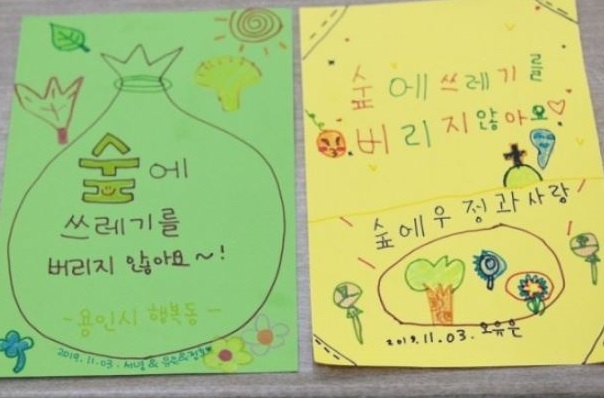 숲에
쓰레기를
버리지 않아요~!
-용인시 행복동-
2019.11.03. 서영 &
숲에쓰레기를
버리지않아요
숲에우정과사랑
2019.11.03. 오유은